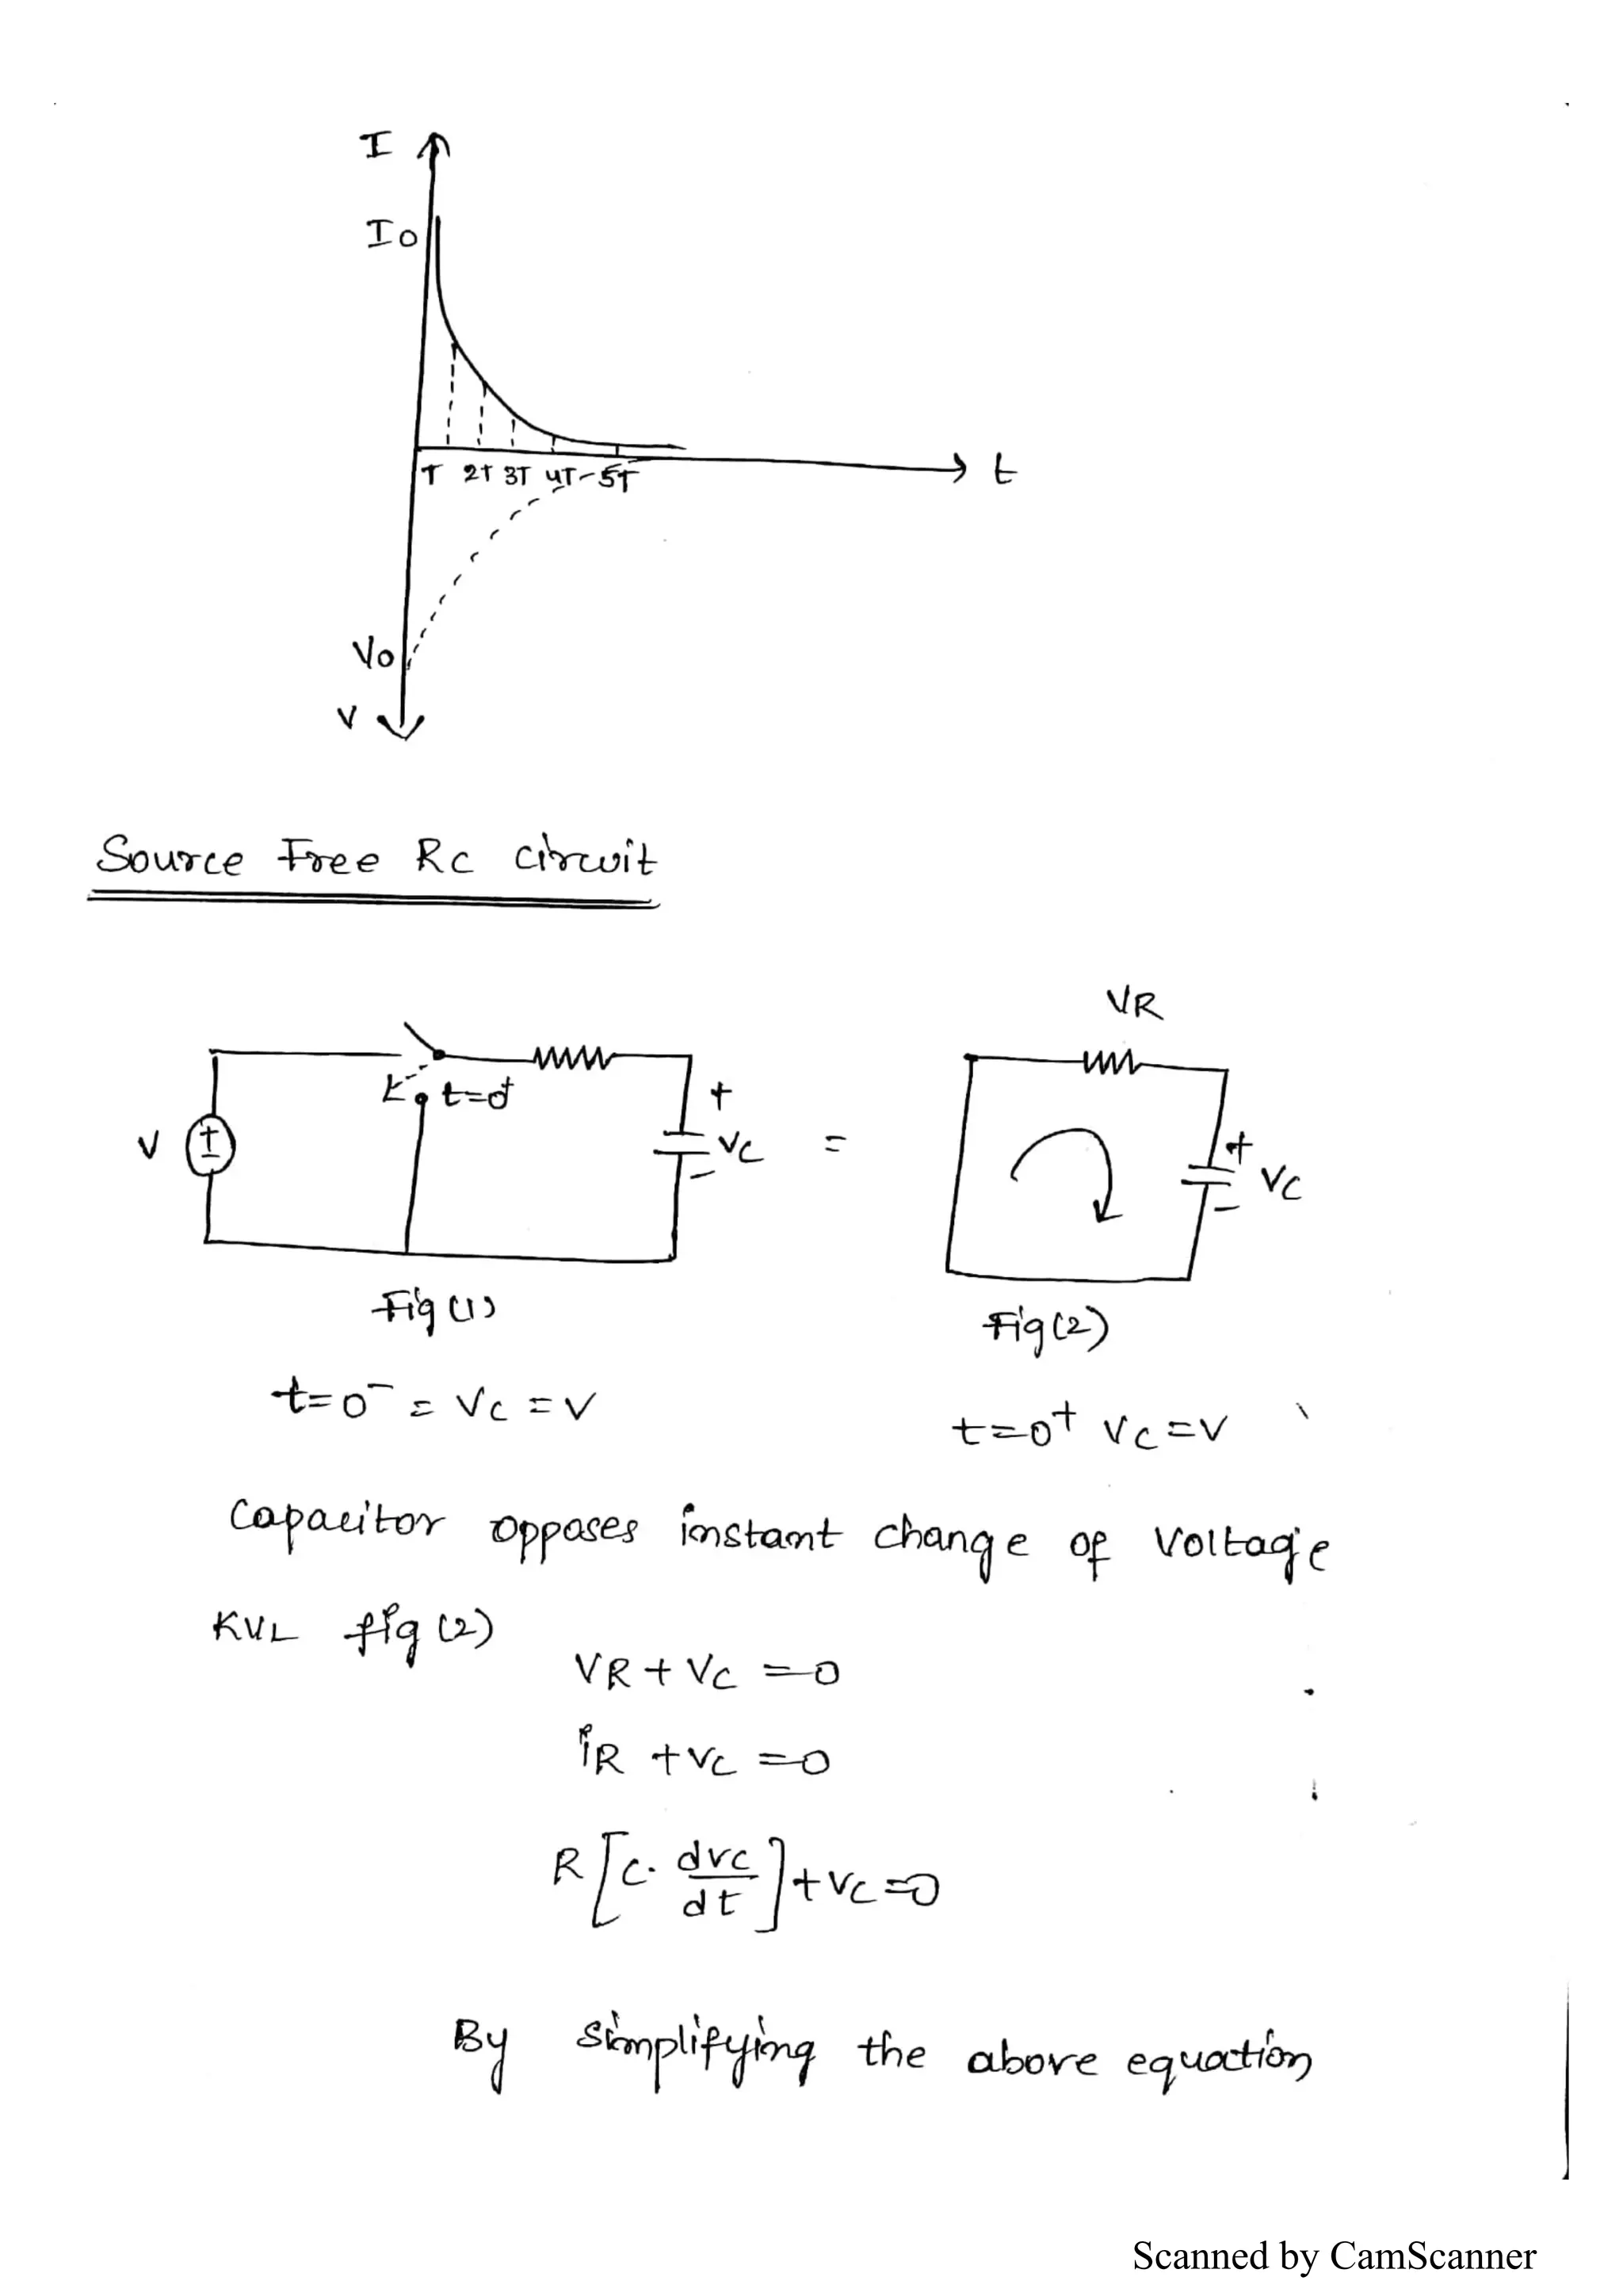 I
I0
T 2T 3T 4T 5T
t
V0
V
Source Free RC circuit
VR
t=0+
+
V
±
VC
-
=
+
VC
-
Fig(1)
Fig(2)
t=0⁻ = VC = V
t=0⁺ VC = V
Capacitor opposes instant change of Voltage
KVL fig(2)
VR + VC = 0
iR + VC = 0
R[C. dvc/dt] + VC = 0
By simplifying the above equation
Scanned by CamScanner